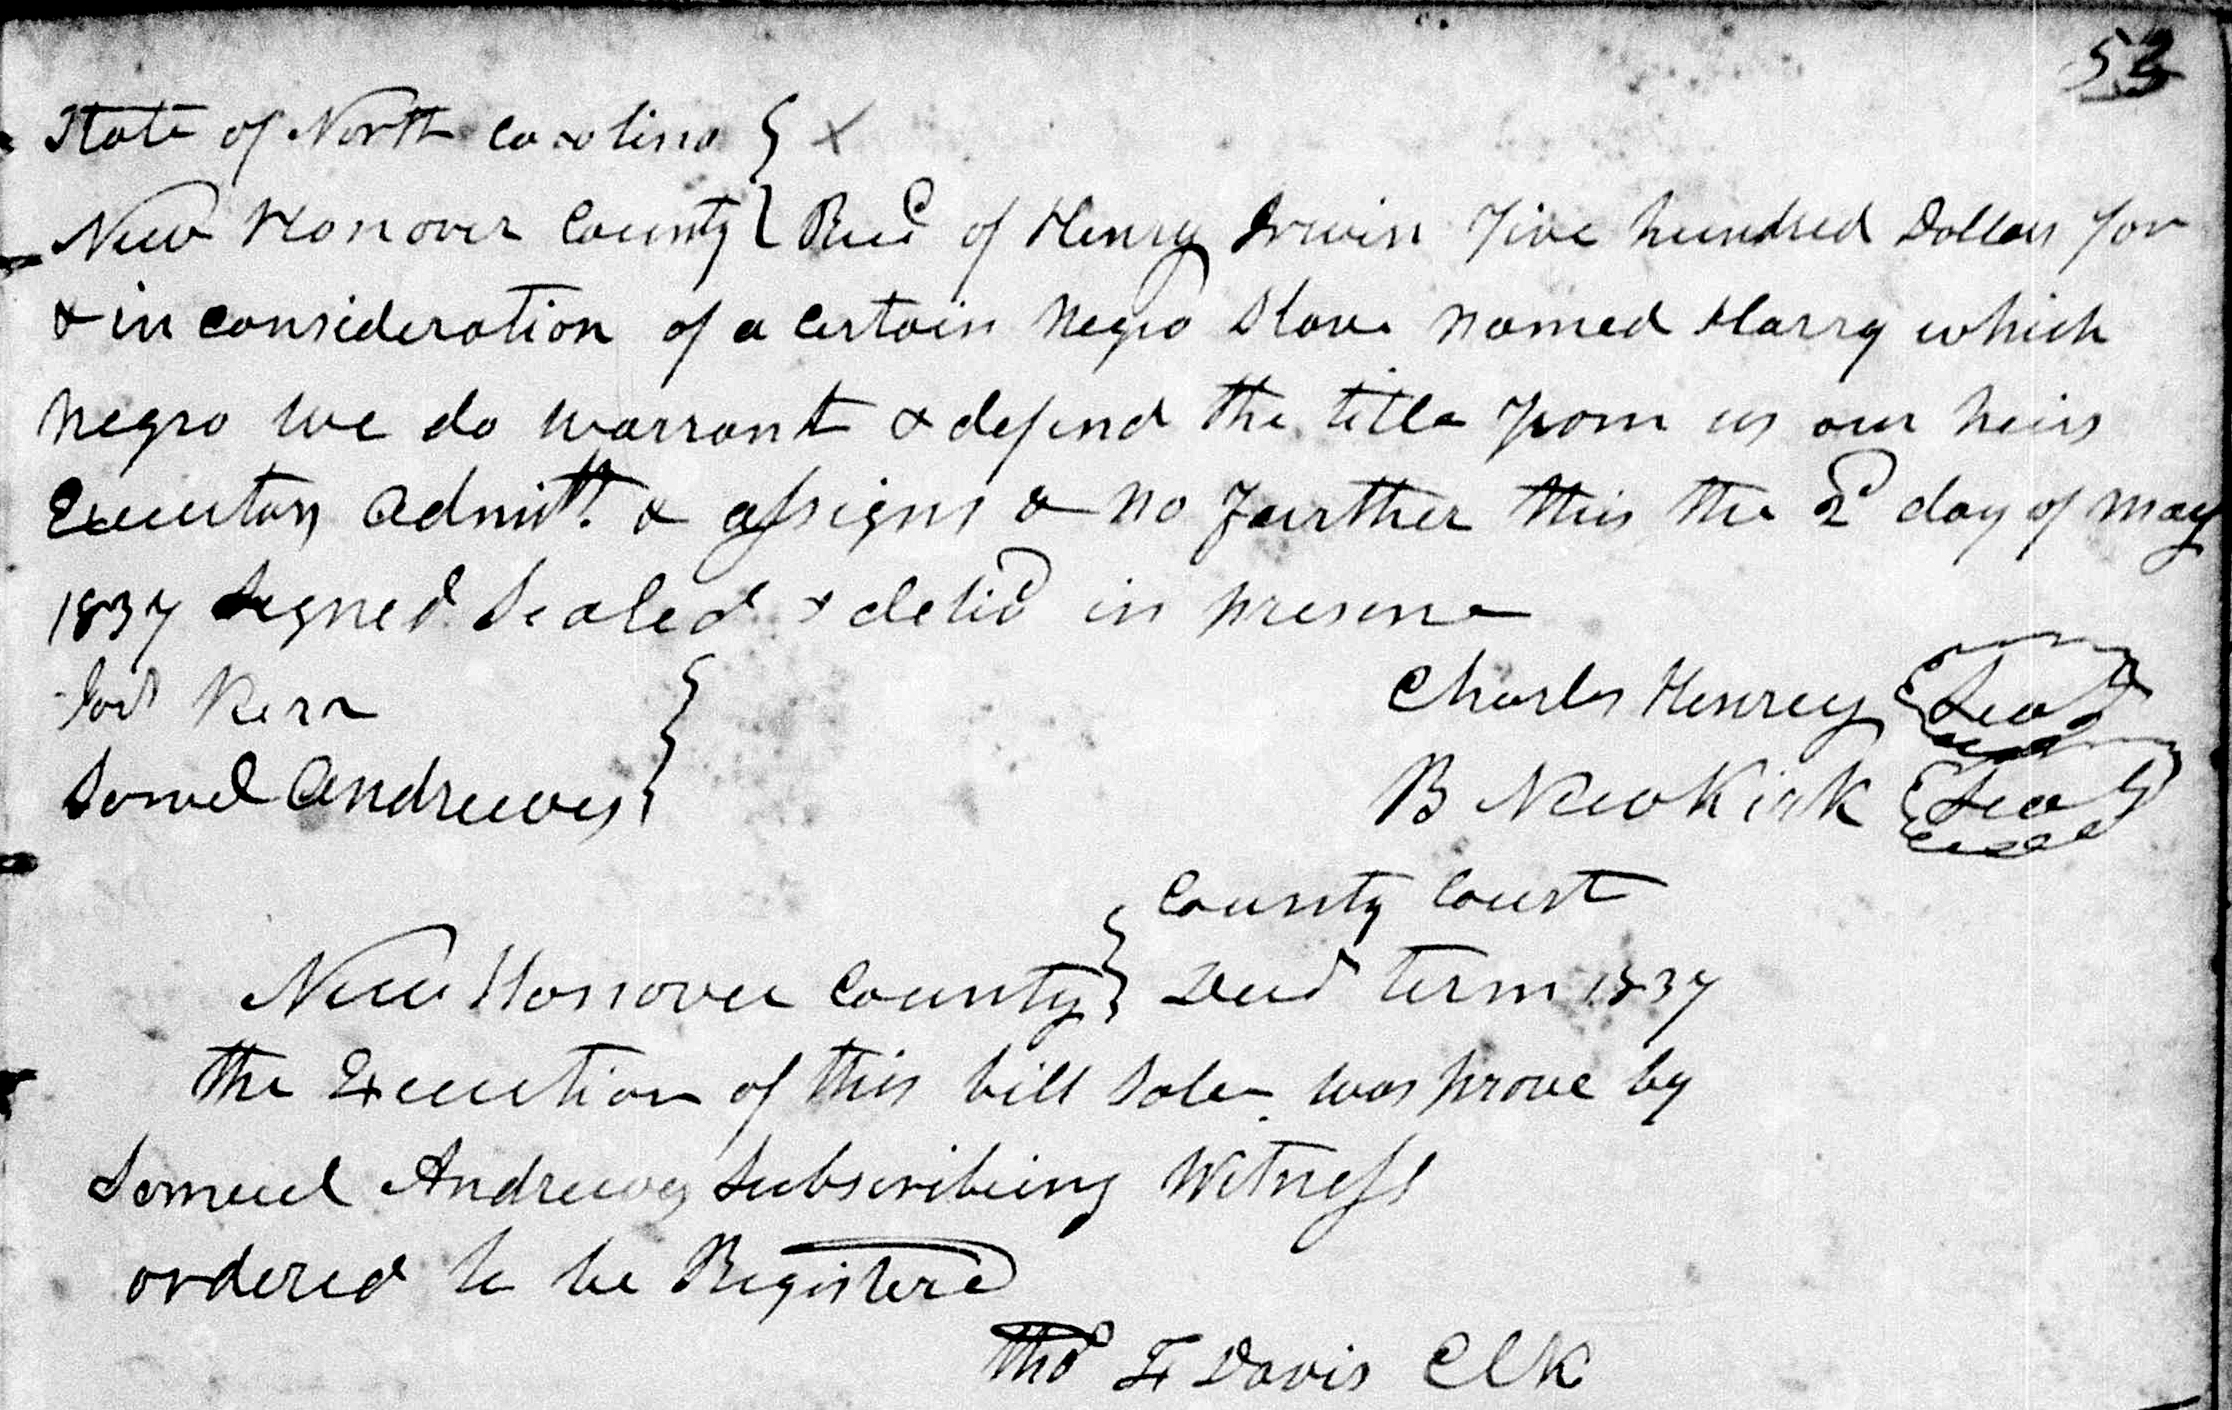 53
State of North Carolina } x
New Hanover County } Recd of Henry Irwin Five hundred Dollars for
& in consideration of a certain Negro Slave named Harry which
Negro we do warrant & defend the title from us our heirs
Executors Admitt. & assigns & no further this the 2d day of May
1837 Signed Sealed & delid in presene
Kerr
Samel Andrews }
Charles Henrey Seal
B NewKirk Seal
County Court
New Hanover County } term 1837
the Execution of this bill Sale was prove by
Samuel Andrews Subscribing Witness
ordered to be Registered
Thos F Davis Clk